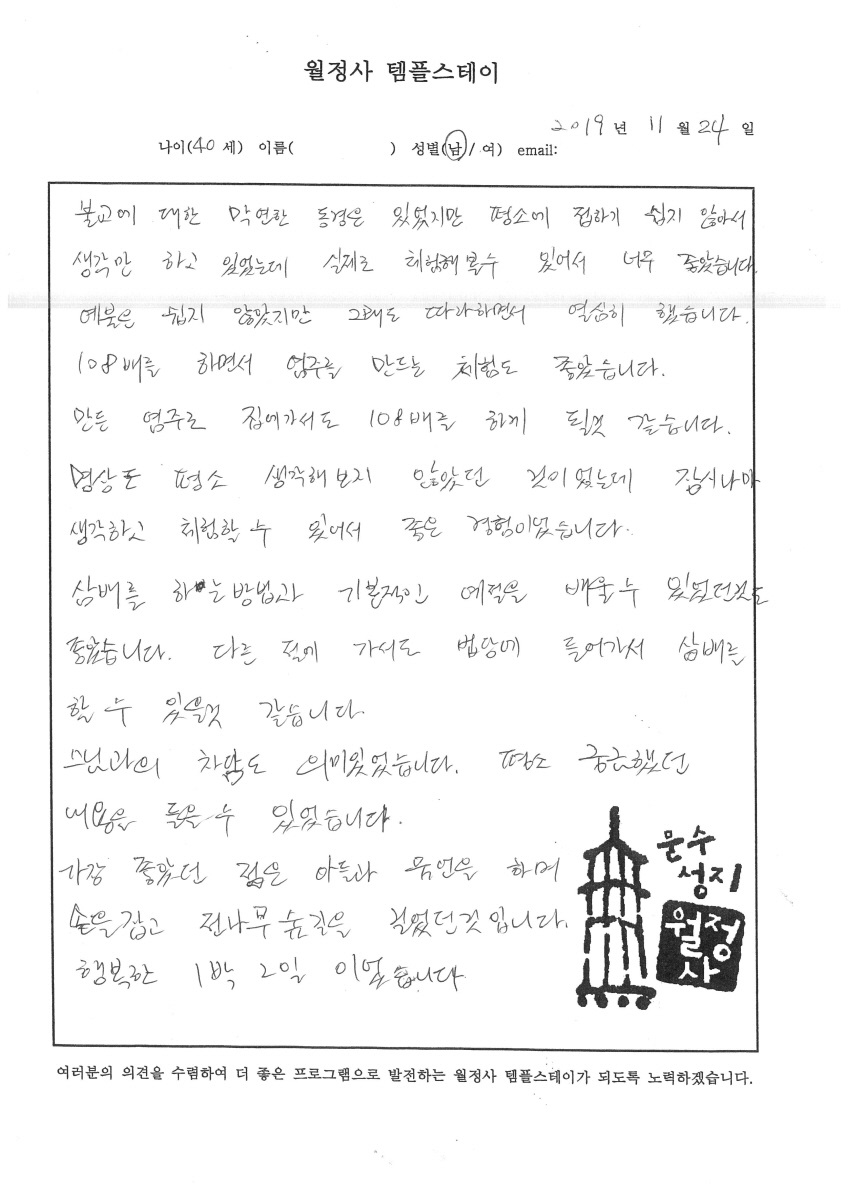 월정사 템플스테이
2019 년 11 월 24 일
나이(40 세) 이름( ) 성별(남/여) email:
불교에 대한 막연한 동경은 있었지만 평소에 접하기 쉽지 않아서
생각만 하고 있었는데 실제로 체험해 볼수 있어서 너무 좋았습니다.
예불은 쉽지 않았지만 그래도 따라하면서 열심히 했습니다.
108배를 하면서 염주를 만드는 체험도 좋았습니다.
만든 염주로 집에가서도 108배를 하게 될것 같습니다.
명상도 평소 생각해보지 않았던 것이었는데 잠시나마
생각하고 체험할 수 있어서 좋은 경험이었습니다.
삼배를 하는방법과 기본적인 예절을 배울수 있었던것도
좋았습니다. 다른 절에 가서도 법당에 들어가서 삼배를
할 수 있을것 같습니다.
스님과의 차담도 의미있었습니다. 평소 궁금했던
내용을 들을 수 있었습니다.
가장 좋았던 점은 아들과 묵언을 하며
손을잡고 전나무 숲길을 걸었던것 입니다.
행복한 1박 2일 이었습니다
문수
성지
월정
사
여러분의 의견을 수렴하여 더 좋은 프로그램으로 발전하는 월정사 템플스테이가 되도록 노력하겠습니다.